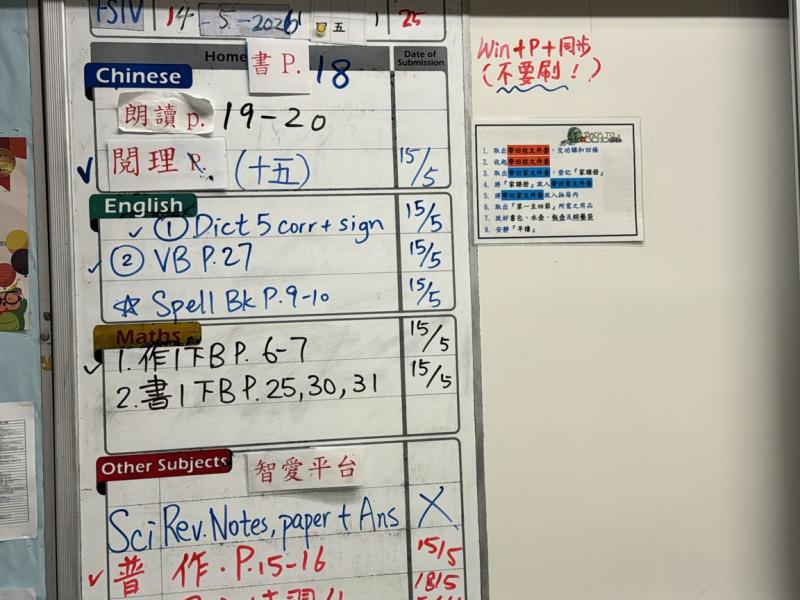 14 - 5 - 2026 五 25
Home
Date of Submission
Chinese 書 P. 18
朗讀 p. 19-20
閱理 P. (十五) 15/5
English
① Dict 5 corr + sign 15/5
② VB P.27 15/5
☆ Spell Bk P.9-10 15/5
Maths
1. 作1下B P. 6-7 15/5
2. 書1下B P. 25, 30, 31 15/5
Other Subjects 智愛平台
Sci Rev. Notes, paper + Ans X
普 作. P.15-16 15/5
18/5
Win+P+同步
(不要刷!)
BACK TO SCHOOL
1. 取出帶回校文件套，交功課和回條
2. 收起帶回校文件套
3. 取出帶回家文件套，登記「家課冊」
4. 將「家課冊」放入帶回家文件套
5. 將帶回家文件套放入抽屜內
6. 取出「第一至四節」所需之用品
7. 放好書包、水壺、飯壺及餐具袋
8. 安靜「早讀」